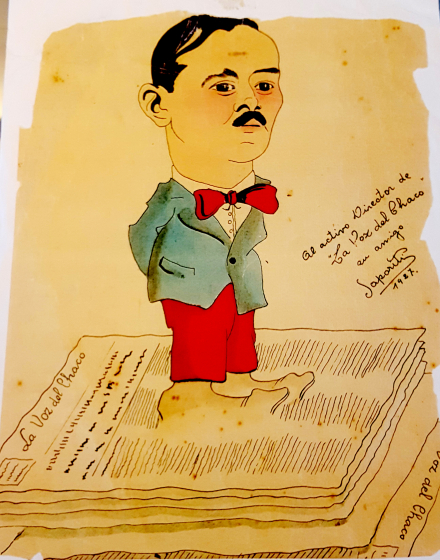 Al activo Director de
"La Voz del Chaco"
su amigo
1927.
La Voz del Chaco
Voz del Chaco